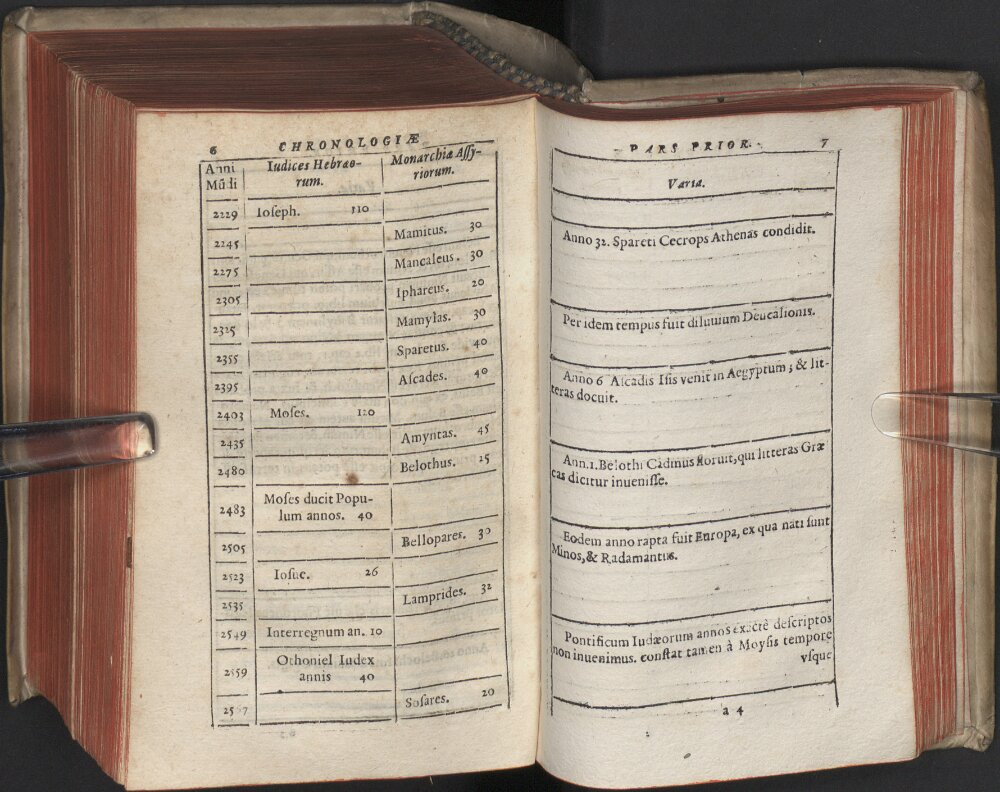 6 CHRONOLOGIÆ
Anni Mũdi
Iudices Hebræo-
rum.
Monarchiæ Aſſy-
riorum.
2229 Ioſeph. 110
2245 Mamitus. 30
2275 Mancaleus. 30
2305 Iphareus. 20
2325 Mamylas. 30
2355 Sparetus. 40
2395 Aſcades. 40
2403 Moſes. 120
2435 Amyntas. 45
2480 Belothus. 25
2483 Moſes ducit Popu-
lum annos. 40
2505 Bellopares. 30
2523 Ioſue. 26
2535 Lamprides. 32
2549 Interregnum an. 10
2559 Othoniel Iudex
annis 40
Soſares. 20
PARS PRIOR. 7
Varia.
Anno 32. Spareti Cecrops Athenas condidit.
Per idem tempus fuit diluuium Deucalionis.
Anno 6 Aſcadis Iſis venit in Aegyptum; & lit-
teras docuit.
Ann. 1. Belothi Cadmus floruit, qui litteras Græ
cas dicitur inueniſſe.
Eodem anno rapta fuit Europa, ex qua nati ſunt
Minos, & Radamantus.
Pontificum Iudæorum annos exactè deſcriptos
non inuenimus. conſtat tamen à Moyſis tempore
vſque
a 4